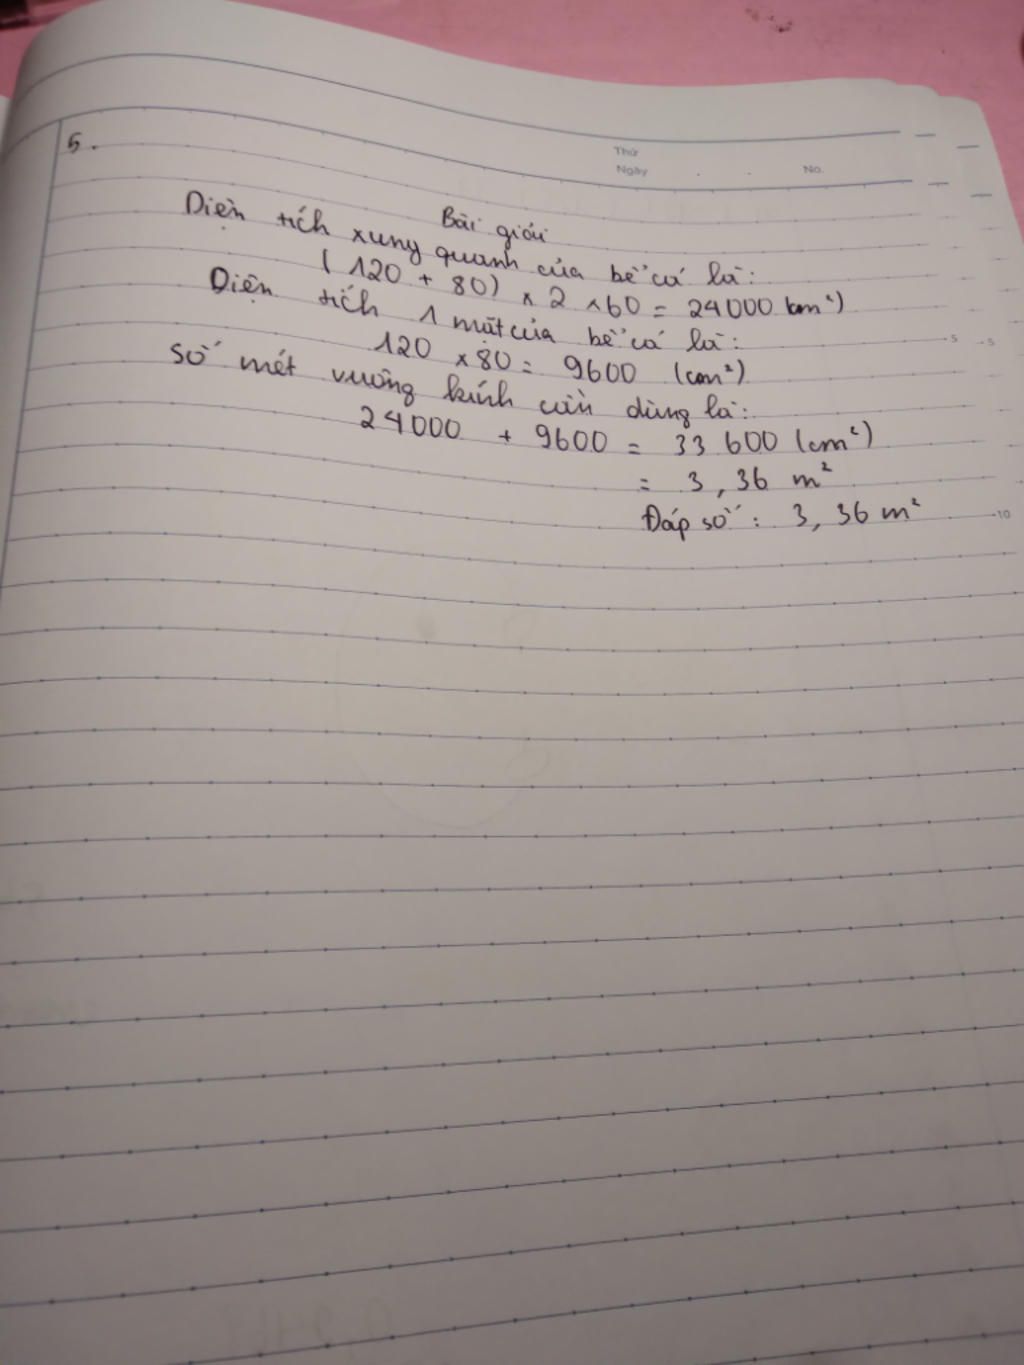 Thứ
Ngày . . No.
5.
Bài giải
Diện tích xung quanh của bể cá là:
(120 + 80) x 2 x 60 = 24000 (cm²)
Diện tích 1 mặt của bể cá là:
120 x 80 = 9600 (cm²)
Số mét vuông kính cần dùng là:
24000 + 9600 = 33 600 (cm²)
= 3,36 m²
Đáp số: 3,36 m²
5
5
10